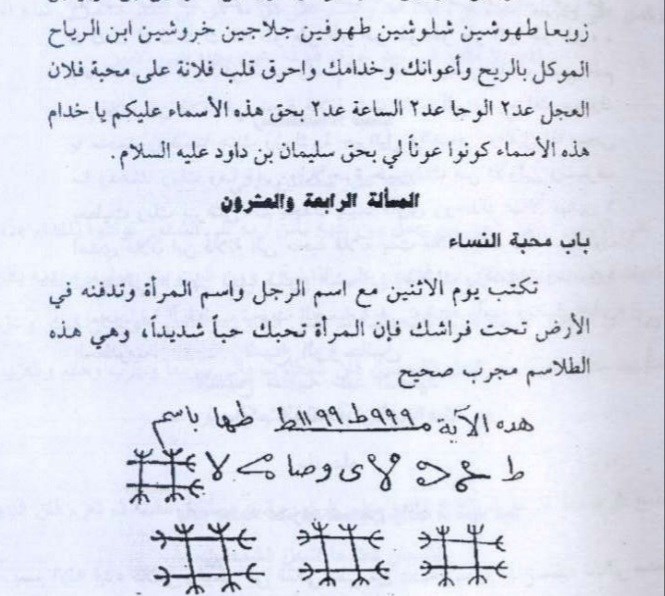 زوبعا طهوشين شلوشين طهوفين جلاجين خروشين ابن الرياح
الموكل بالريح وأعوانك وخدامك واحرق قلب فلانة على محبة فلان
العجل عدد٢ الوحا عدد٢ الساعة عدد٢ بحق هذه الأسماء عليكم يا خدام
هذه الأسماء كونوا عوناً لي بحق سليمان بن داود عليه السلام.
المسألة الرابعة والعشرون
باب محبة النساء
تكتب يوم الاثنين مع اسم الرجل واسم المرأة وتدفنه في
الأرض تحت فراشك فإن المرأة تحبك حباً شديداً، وهي هذه
الطلاسم مجرب صحيح
هده الآية ٩٩٩ط١١٩٩ط طها باسم
ط ى وصا لا